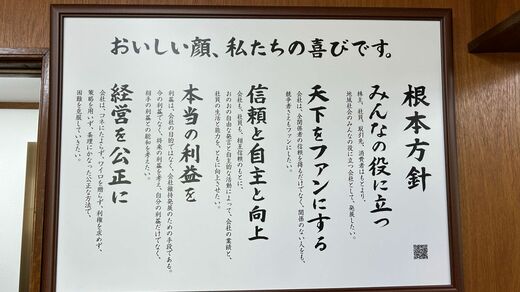 おいしい顔、私たちの喜びです。
根本方針
みんなの役に立つ
株主、社員、取引先、消費者はもとより、
地域社会のみんなの役に立つ会社として、発展したい。
天下をファンにする
会社は、全関係者の信頼を得るだけでなく、関係のない人をも、
競争者さえもファンにしたい。
信頼と自主と向上
会社も、社員も、相互信頼のもとに、
おのおの自由な発言と自主的な活動によって、会社の業績と、
社員の生活と能力を、ともに向上させたい。
本当の利益を
利益は、会社の目的ではなく、会社維持発展のための手段である。
今の利益でなく、将来の利益を考え、自分の利益だけでなく、
相手の利益との総和を考えたい。
経営を公正に
会社は、コネにたよらず、ワイロを贈らず、利権を求めず、
策略を用いず、条理にかなった公正な方法で、
困難を克服していきたい。